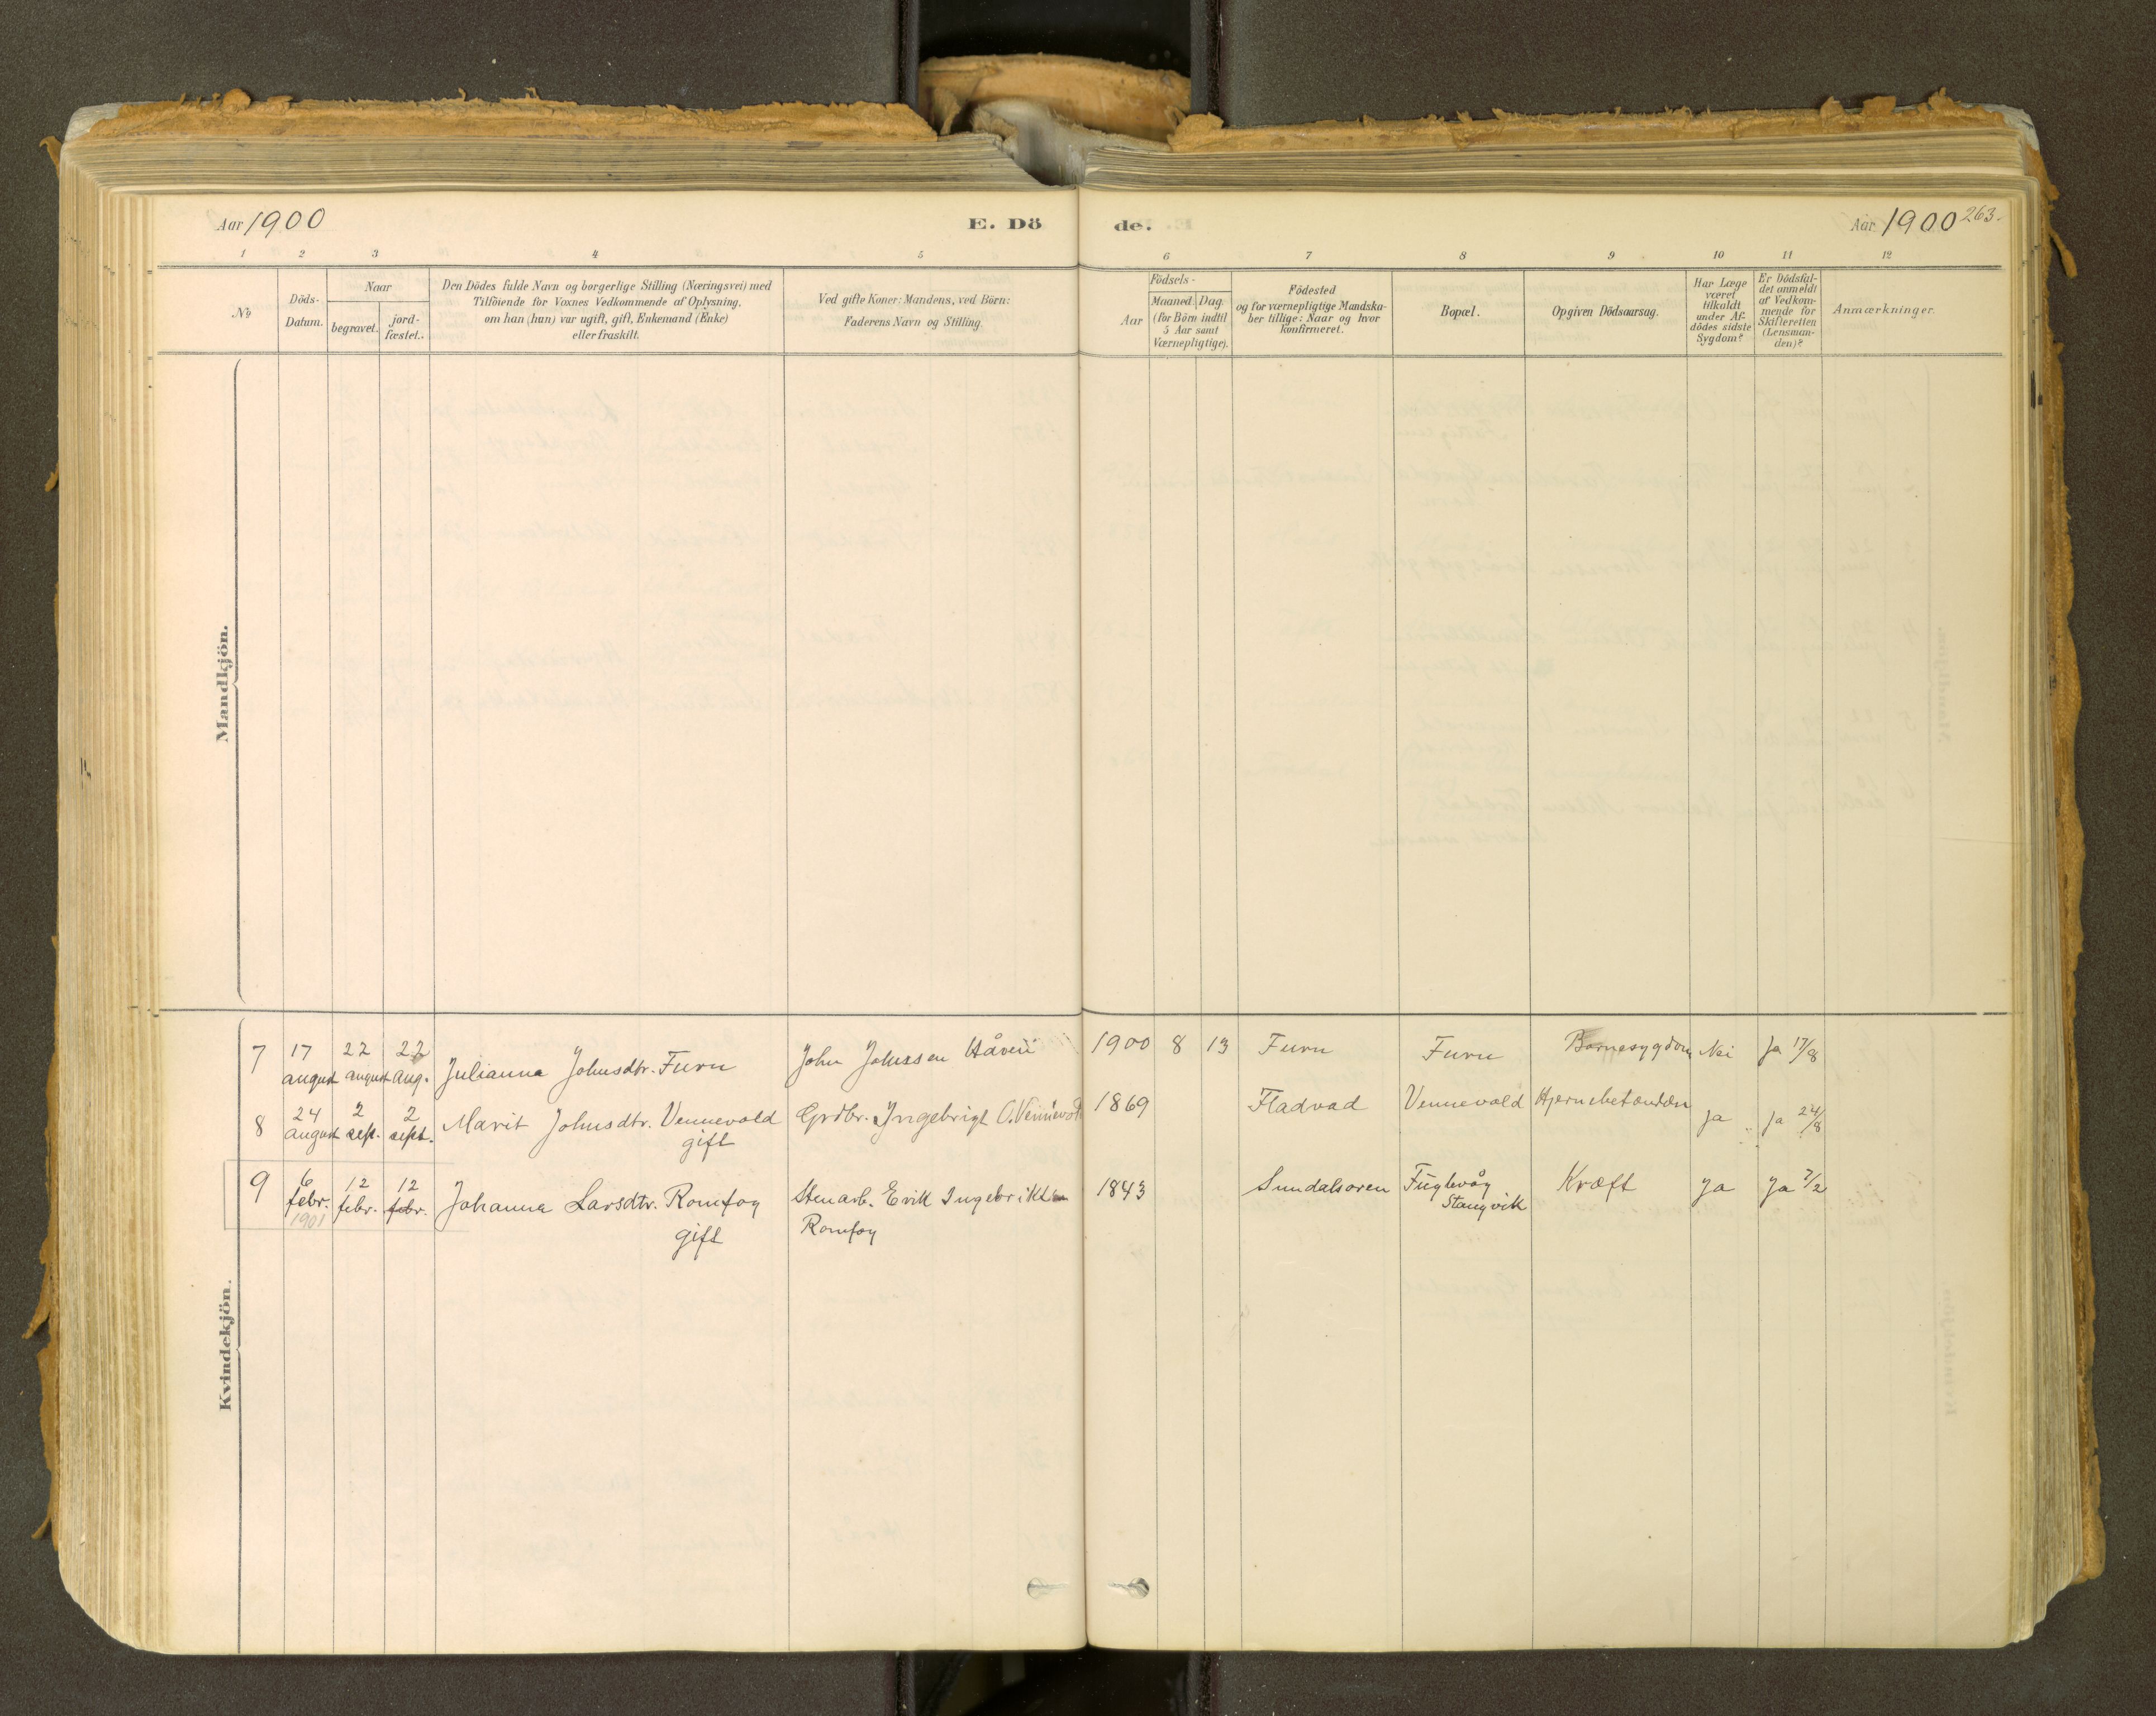 Aar 1900
E. Dö
de.
Aar 1900 263.
1 2 3 4 5 6 7 8 9 10 11 12
№
Döds-
Datum.
Naar
begravet.
jord-
fæstet.
Den Dödes fulde Navn og borgerlige Stilling (Næringsvei) med
Tilföiende for Voxnes Vedkommende af Oplysning,
om han (hun) var ugift, gift, Enkemand (Enke)
eller fraskilt.
Ved gifte Koner: Mandens, ved Börn:
Faderens Navn og Stilling.
Aar
Födsels-
Maaned. Dag.
(for Börn indtil
5 Aar samt
Værnepligtige).
Födested
og for værnepligtige Mandska-
ber tillige: Naar og hvor
konfirmeret.
Bopæl.
Opgiven Dödsaarsag.
Har Læge
været
tilkaldt
under Af-
dödes sidste
Sygdom?
Er Dödsfal-
det anmeldt
af Vedkom-
mende for
Skifteretten
(Lensman-
den)?
Anmærkninger.
Mandkjön.
Kvindekjön.
7 17 august 22 august 22 aug. Julianna Johnsdtr. Furu John Johnssen 1900 8 13 Furu Furu Barnesygdom Nei Ja 17/8
8 24 august 2 sept. 2 sept. Marit Johnsdtr. Vennevold Grdbr. Ingebrigt O. Vennevold 1869 Fladvad Vennevold Hjernebetændelse ja ja 24/8
gift
9 6 febr. 12 febr. 12 febr. Johanna Larsdtr. Romfog Stenarb. Erik Ingebriktsen 1843 Sundalsoren Fuglevåg Kræft ja ja 7/2
1901
Stangvik
gift Romfog